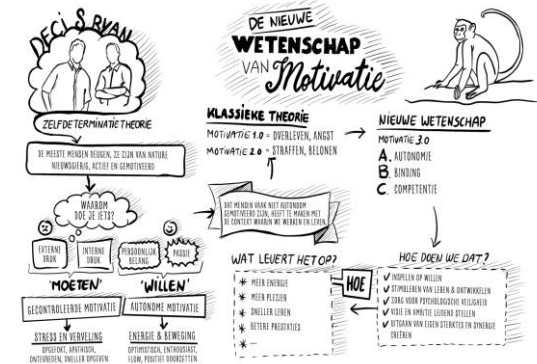 DECI & RYAN
ZELFDETERMINATIE THEORIE
DE MEESTE MENSEN DEUGEN, ZE ZIJN VAN NATURE
NIEUWSGIERIG, ACTIEF EN GEMOTIVEERD
WAAROM
DOE JE IETS?
EXTERNE
DRUK
INTERNE
DRUK
PERSOONLIJK
BELANG
PASSIE
"MOETEN"
'WILLEN'
GECONTROLEERDE MOTIVATIE
AUTONOME MOTIVATIE
STRESS EN VERVELING
OPGEFOKT, APATHISCH,
ONTEVREDEN, SNELLER OPGEVEN
ENERGIE & BEWEGING
OPTIMISTISCH, ENTHOUSIAST,
FLOW, POSITIEF DOORZETTEN
DE NIEUWE
WETENSCHAP
VAN Motivatie
KLASSIEKE THEORIE
MOTIVATIE 1.0 = OVERLEVEN, ANGST
MOTIVATIE 2.0 = STRAFFEN, BELONEN
DAT MENSEN VAAK NIET AUTONOOM
GEMOTIVEERD ZIJN, HEEFT TE MAKEN MET
DE CONTEXT WAARIN WE WERKEN EN LEVEN.
NIEUWE WETENSCHAP
MOTIVATIE 3.0
A. AUTONOMIE
B. BINDING
C. COMPETENTIE
WAT LEVERT HET OP?
* MEER ENERGIE
* MEER PLEZIER
* SNELLER LEREN
* BETERE PRESTATIES
* ...
HOE
HOE DOEN WE DAT?
✓ INSPELEN OP WILLEN
✓ STIMULEREN VAN LEREN & ONTWIKKELEN
✓ ZORG VOOR PSYCHOLOGISCHE VEILIGHEID
✓ VISIE EN AMBITIE LEIDEND STELLEN
✓ UITGAAN VAN EIGEN STERKTES EN SYNERGIE
CREËREN